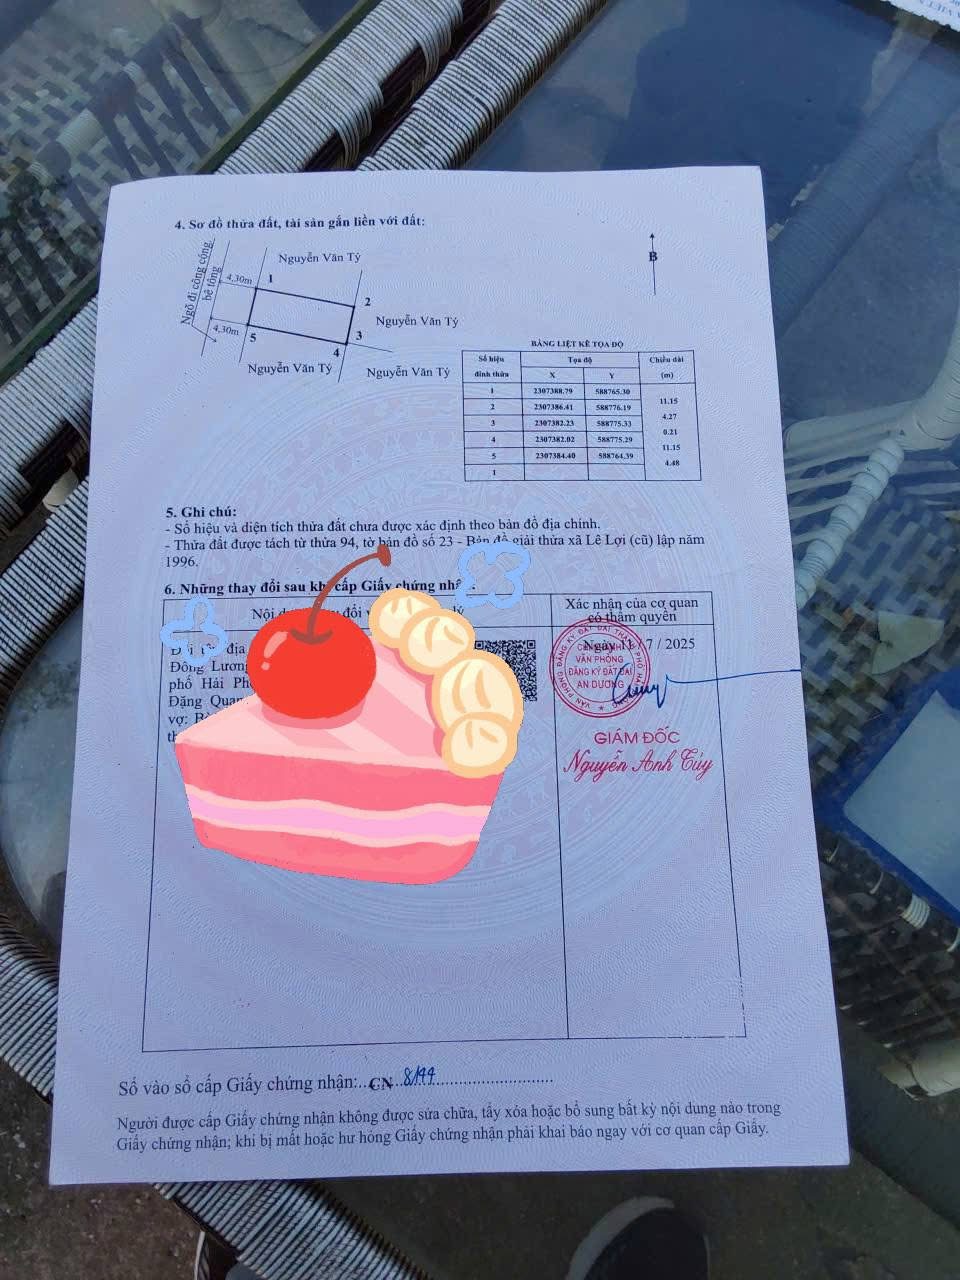 4. Sơ đồ thửa đất, tài sản gắn liền với đất:
Nguyễn Văn Tý
B
Ngõ đi công cộng
bê tông
4,30m
1
2
Nguyễn Văn Tý
3
4,30m
5
4
Nguyễn Văn Tý
Nguyễn Văn Tý
BẢNG LIỆT KÊ TỌA ĐỘ
Số hiệu đỉnh thửa Tọa độ Chiều dài (m)
X Y
1 2307388.79 588765.30
11.15
2 2307386.41 588776.19
4.27
3 2307382.23 588775.33
0.21
4 2307382.02 588775.29
11.15
5 2307384.40 588764.39
4.48
1
5. Ghi chú:
- Số hiệu và diện tích thửa đất chưa được xác định theo bản đồ địa chính.
- Thửa đất được tách từ thửa 94, tờ bản đồ số 23 - Bản đồ giải thửa xã Lê Lợi (cũ) lập năm
1996.
6. Những thay đổi sau khi cấp Giấy chứng
Nội đổi lý
Xác nhận của cơ quan
có thẩm quyền
địa
Đông Lương
phố Hải
Đặng
vợ:
Ngày 11 / 7 / 2025
VĂN PHÒNG ĐĂNG KÝ ĐẤT ĐAI THÀNH PHỐ
CHI NHÁNH
VĂN PHÒNG
ĐĂNG KÝ ĐẤT ĐAI
AN DƯƠNG
GIÁM ĐỐC
Nguyễn Anh Túy
Số vào sổ cấp Giấy chứng nhận:...CN 8199
Người được cấp Giấy chứng nhận không được sửa chữa, tẩy xóa hoặc bổ sung bất kỳ nội dung nào trong
Giấy chứng nhận; khi bị mất hoặc hư hỏng Giấy chứng nhận phải khai báo ngay với cơ quan cấp Giấy.